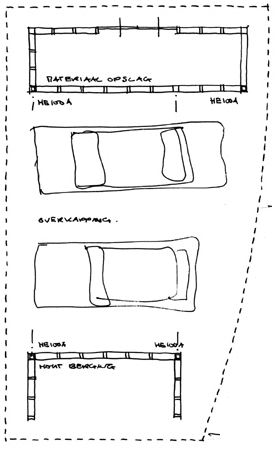 MATERIAAL OPSLAG
HE100A HE100A
OVERKAPPING.
HE100A HE100A
HOUT BERGING